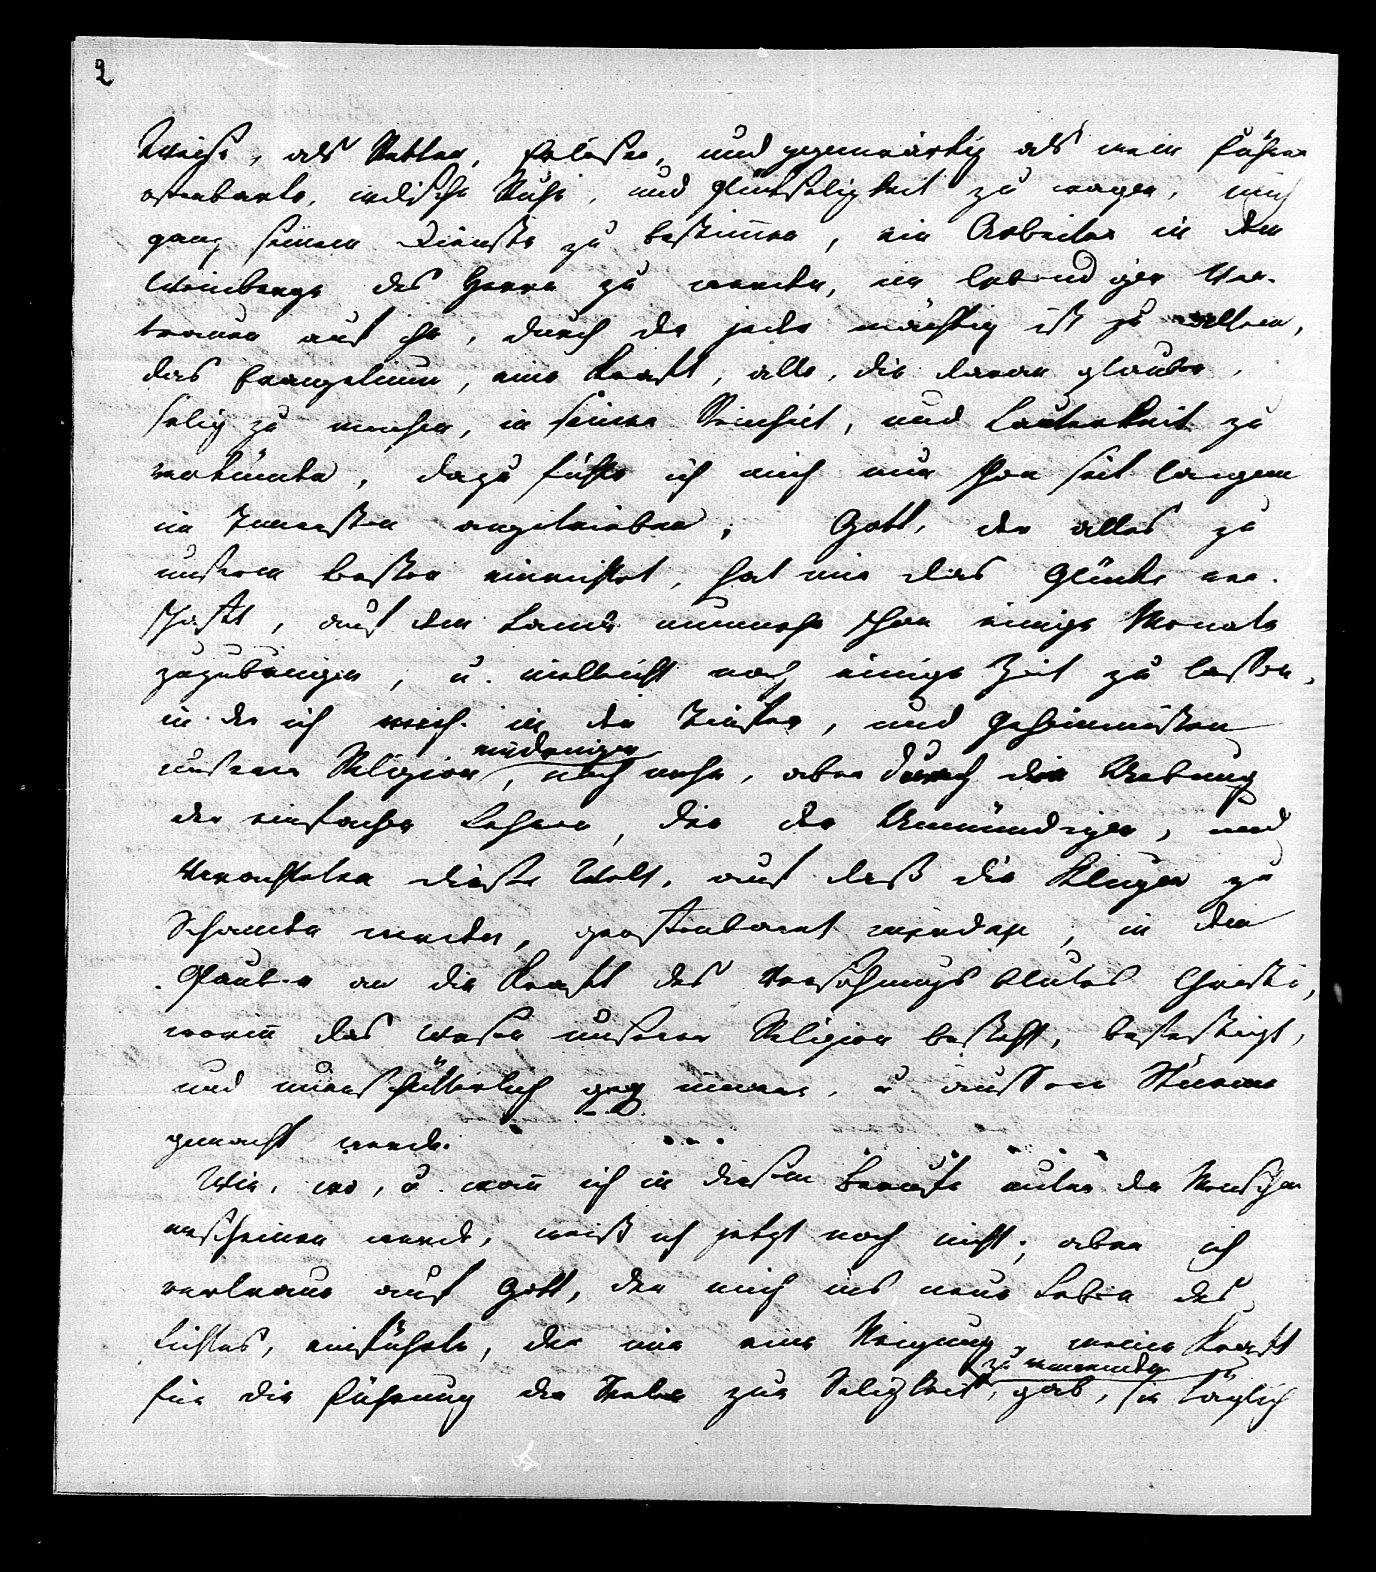 2
Weise, als Retter, Erlöser, und gegenwärtig als mein Führer
offenbarte, irdische Ruhe, und Glückseligkeit zu wagen, mich
ganz seinem Dienste zu bestim̅en, ein Arbeiter in dem
Weinberge des Herrn zu werden, im lebendigen Ver-
trauen auf ihn, durch den jeder mächtig ist zu allem,
das Evangelium, eine Kraft, alle, die daran glauben,
selig zu machen, in seiner Reinheit, und Lauterkeit zu
verkünden, dazu fühlte ich mich nun schon seit langem
im Innersten angetrieben. Gott, der alles zu
unserem besten einrichtet, hat mir das Glück ver-
schafft, auf dem Lande nunmehr schon einige Monate
zuzubringen, u. vielleicht noch einige Zeit zu lassen,
in der ich mich in den Tiefen, und Geheimnissen
unserer Religion,
noch mehr, aber durch die Uebung
der einfachen Lehren, die den Unmündigen, und
Verachteten dieser Welt, auf daß die Klugen zu
Schanden werden, geoffenbaret wurden, in dem
Glauben an die Kraft des Versöhnungsblutes Christi,
worin̅ das Wesen unserer Religion besteht, befestigt,
und unerschütterlich geg innere, u äussere Stürme
gemacht werde.
Wie, wo, u. wan̅ ich in diesem Berufe unter den Menschen
erscheinen werde, weiß ich jetzt noch nicht; aber ich
vertraue auf Gott, der mich ins neue Leben des
Lichtes, einführte, der mir eine Neigung, meine Kraft
zu verwenden
für die Führung der Seelen zur Seligkeit, gab, sie täglich